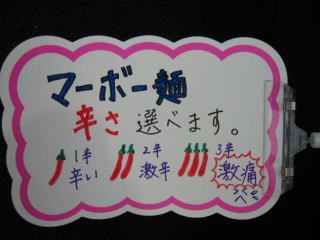 マーボー麺
辛さ 選べます。
1辛 2辛 3辛
辛い 激辛 激痛